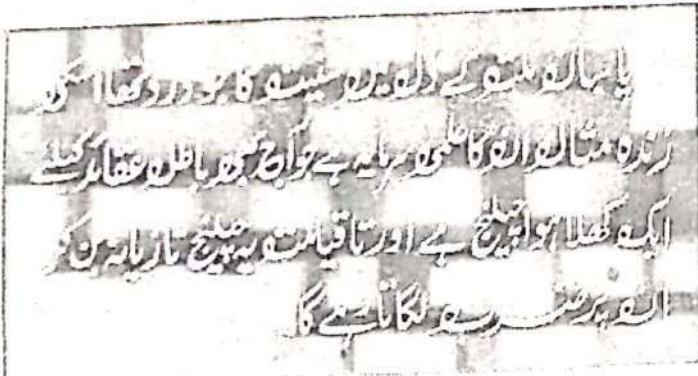 پاسبان ملت کے دل میں سنیت کا جو درد تھا اسکی
زندہ مثال ان کا علمی سرمایہ ہے جو آج بھی باطل عقائد کیلئے
ایک کھلا ہوا چیلنج ہے اور تا قیامت یہ چیلنج تازیانہ بن کر
ان پر ضرب لگاتا رہے گا۔